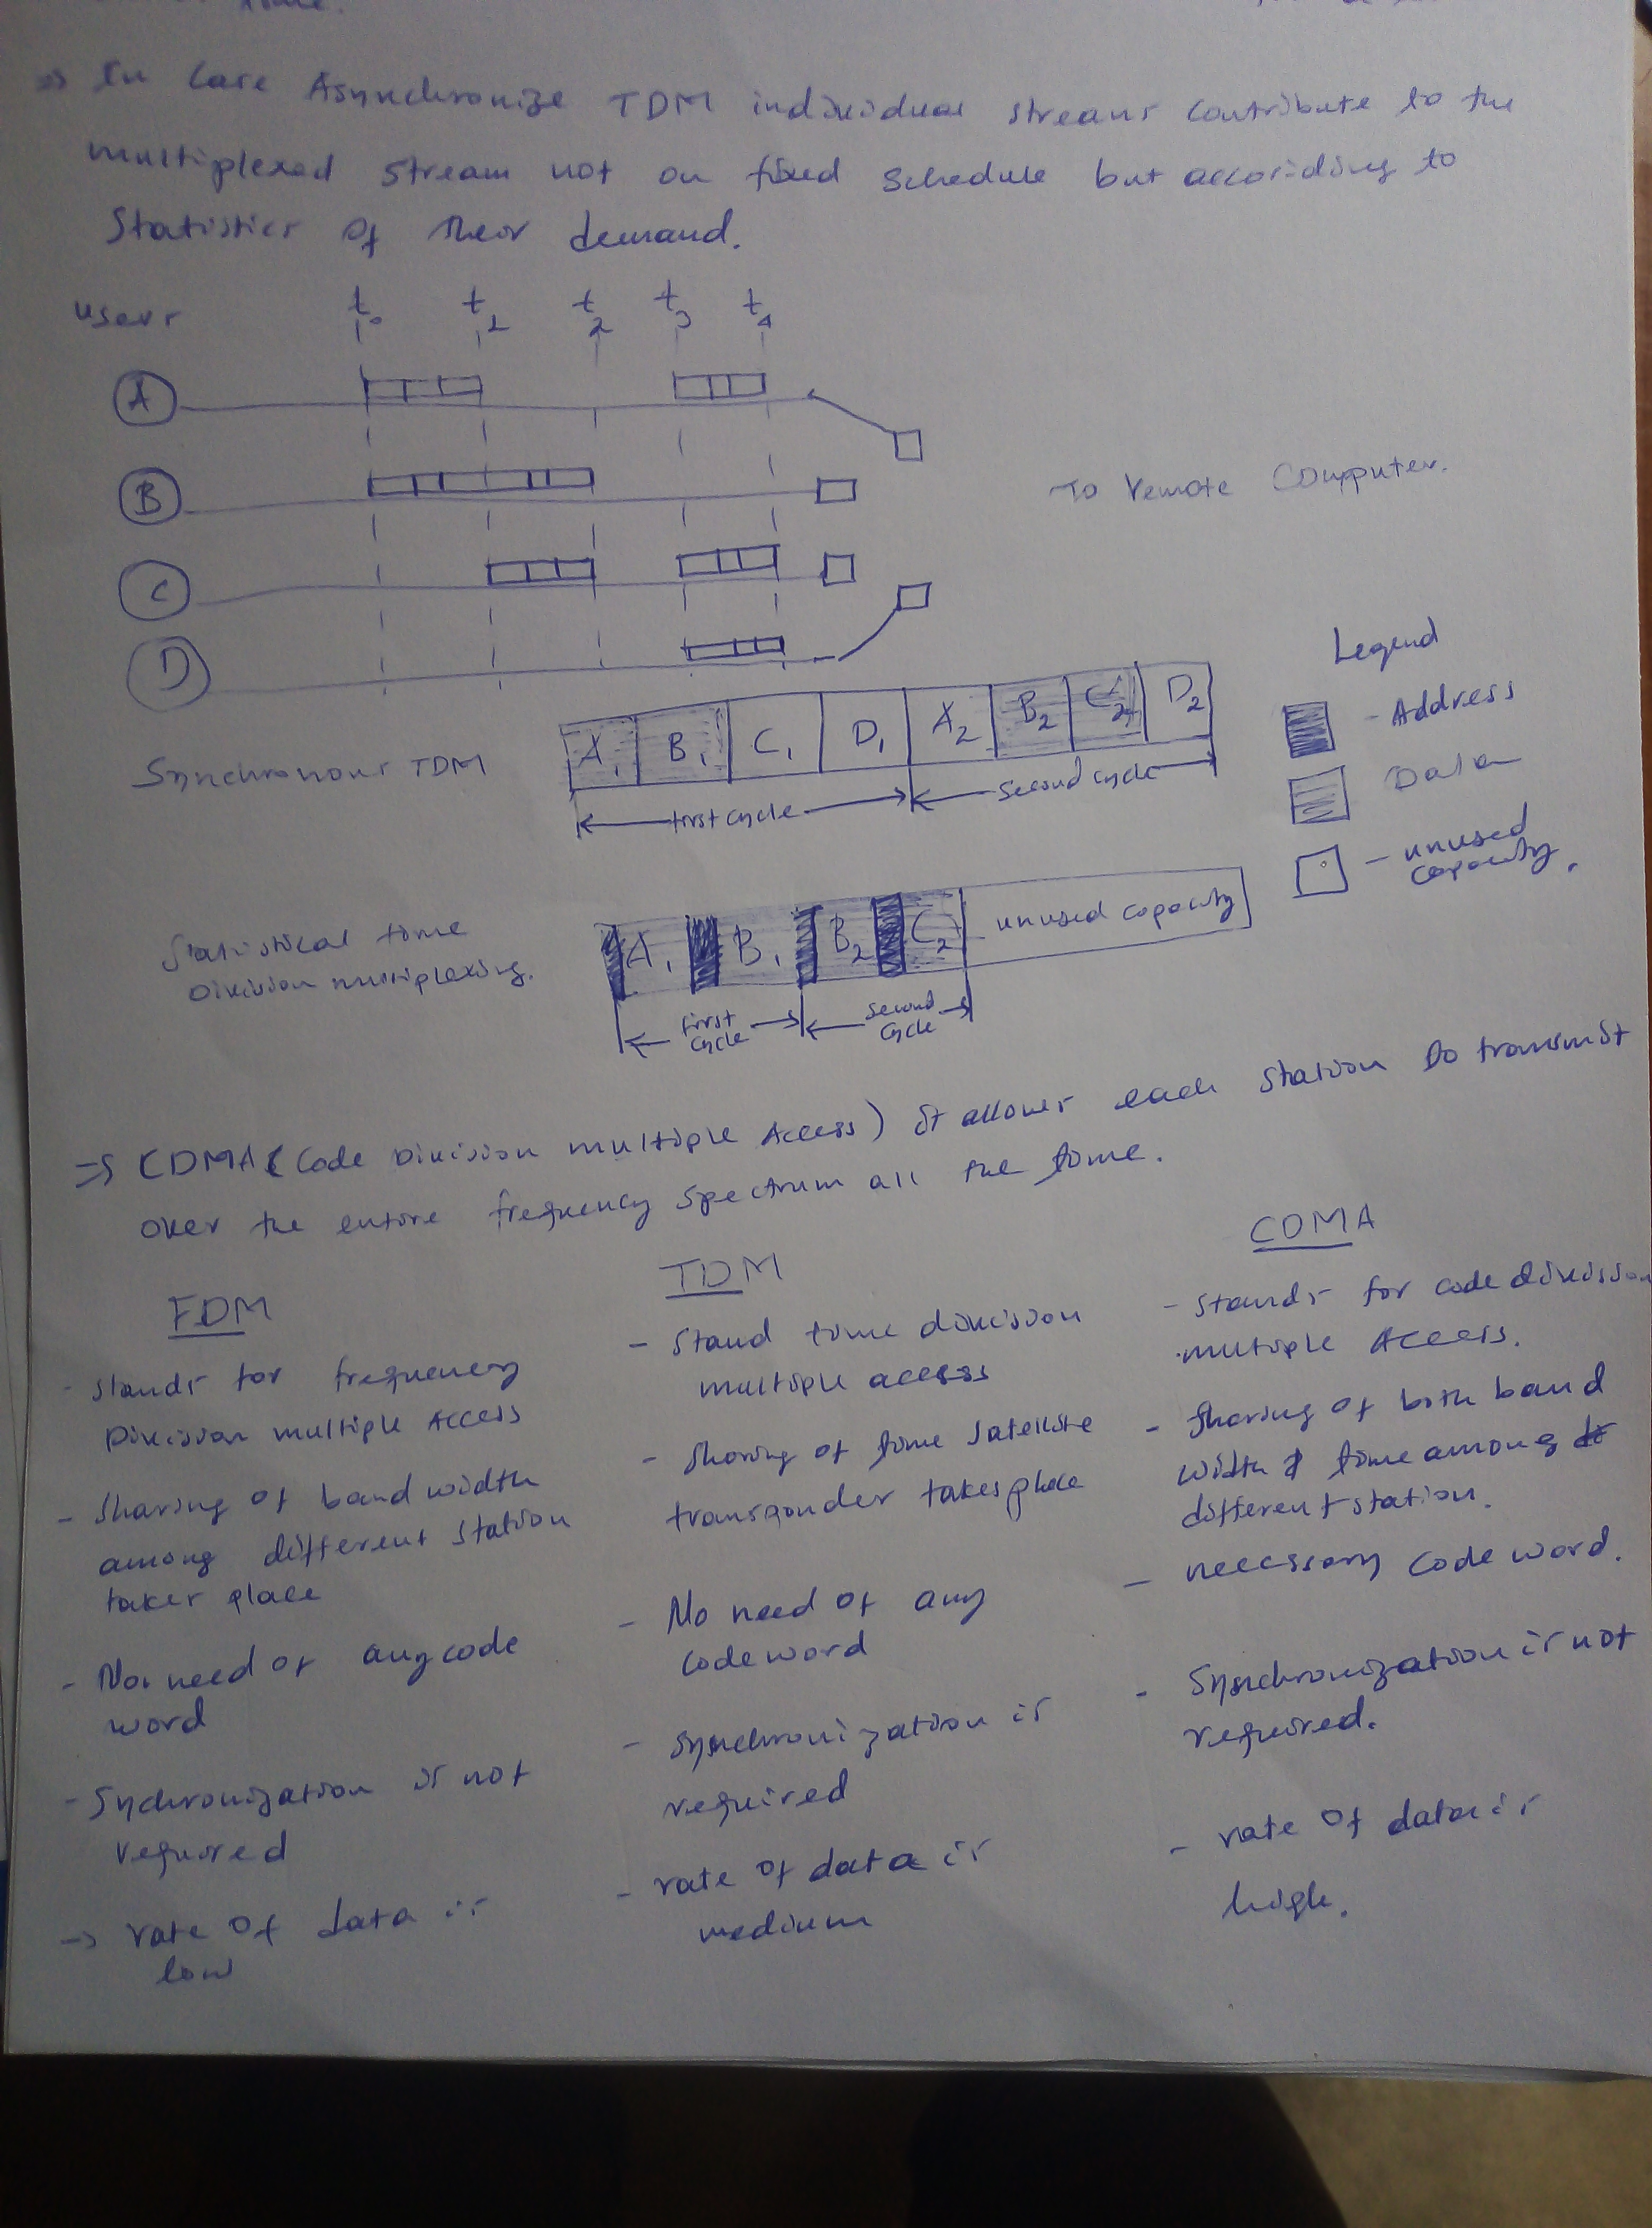 => In Case Asynchronize TDM individual streams contribute to the
multiplexed stream not on fixed schedule but according to
Statistics of their demand.
users t0 t1 t2 t3 t4
A
B
To remote Computer.
C
D
Legend
- Address
Data
- unused
capacity.
Synchronous TDM
A1 B1 C1 D1 A2 B2 C2 D2
first cycle
Second cycle
Statistical time
Division multiplexing.
A1 B1 B2 C2 unused capacity
first
cycle
Second
cycle
=> CDMA (Code Division multiple Access) It allows each station to transmit
over the entire frequency spectrum all the time.
FDM
- Stands for frequency
Division multiple Access
- Sharing of band width
among different station
takes place
- No need of any code
word
- Sychronization is not
required
-> rate of data is
low
TDM
- Stand time division
multiple access
- Sharing of time satellite
transponder takes place
- No need of any
codeword
- Synchronization is
required
- rate of data is
medium
CDMA
- Stands for code division
multiple Access.
- Sharing of both band
width & time among
different station.
- necessary code word.
- Synchronization is not
required.
- rate of data is
high.